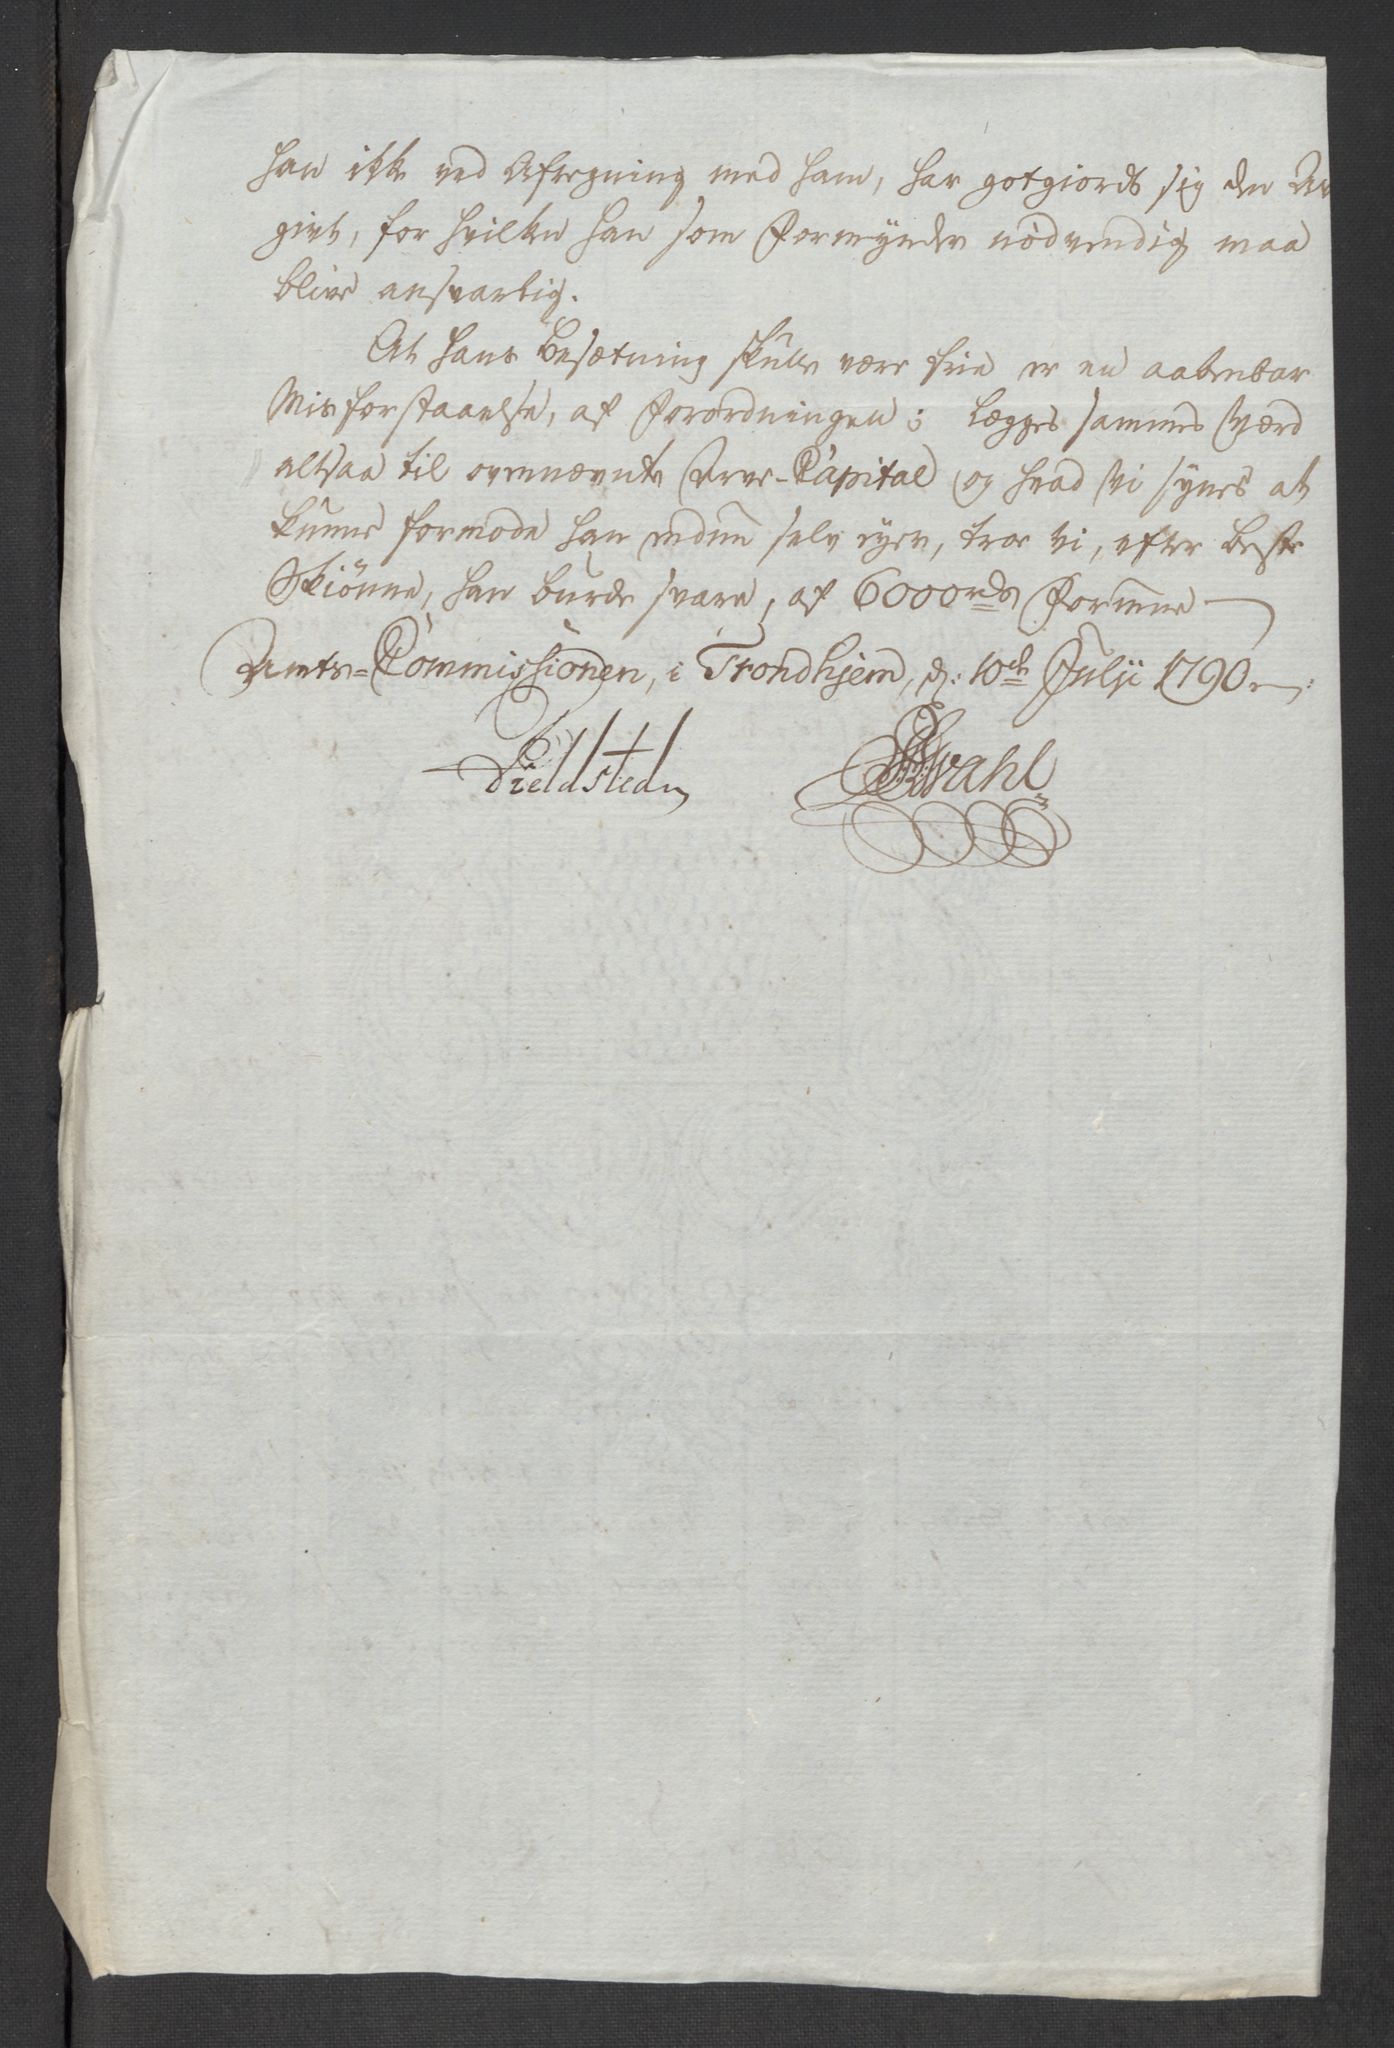 han ikke ved Afregning med ham, har godtgiordt sig den Af
givt, for hvilken han som Formynder nødvendig maa
blive ansvarlig.
At hans Besætning skulle være frie er en aabenbar
Misforstaaelse, af Forordningen; lægges sammes Værd
altsaa til ovennævnte Arve-Capital og hvad vi synes at
kunne formode han endnu selv eyer, troe vi, efter beste
Skiønne, han burde svare, af 6000 rdr Formue
Amts-Commissionen, i Trondhjem, d: 10de Julii 1790
Dieldsted Wahl